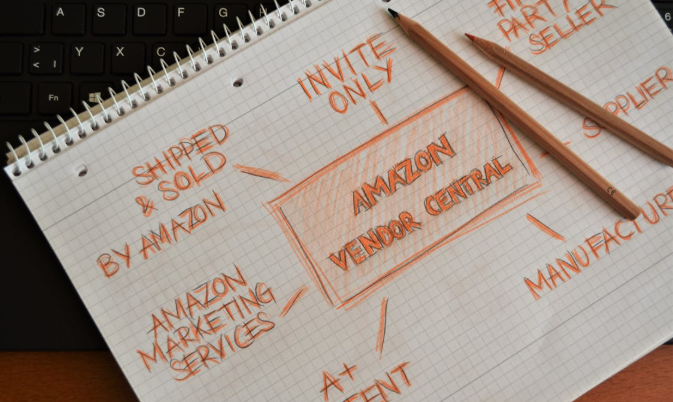 A S D F G
> < | Y X C
Fn
6
INVITE
ONLY
PART
SELLER
SUPPLIER
SHIPPED
& SOLD
BY AMAZON
AMAZON
VENDOR CENTRAL
AMAZON
MARKETING
SERVICES
A+